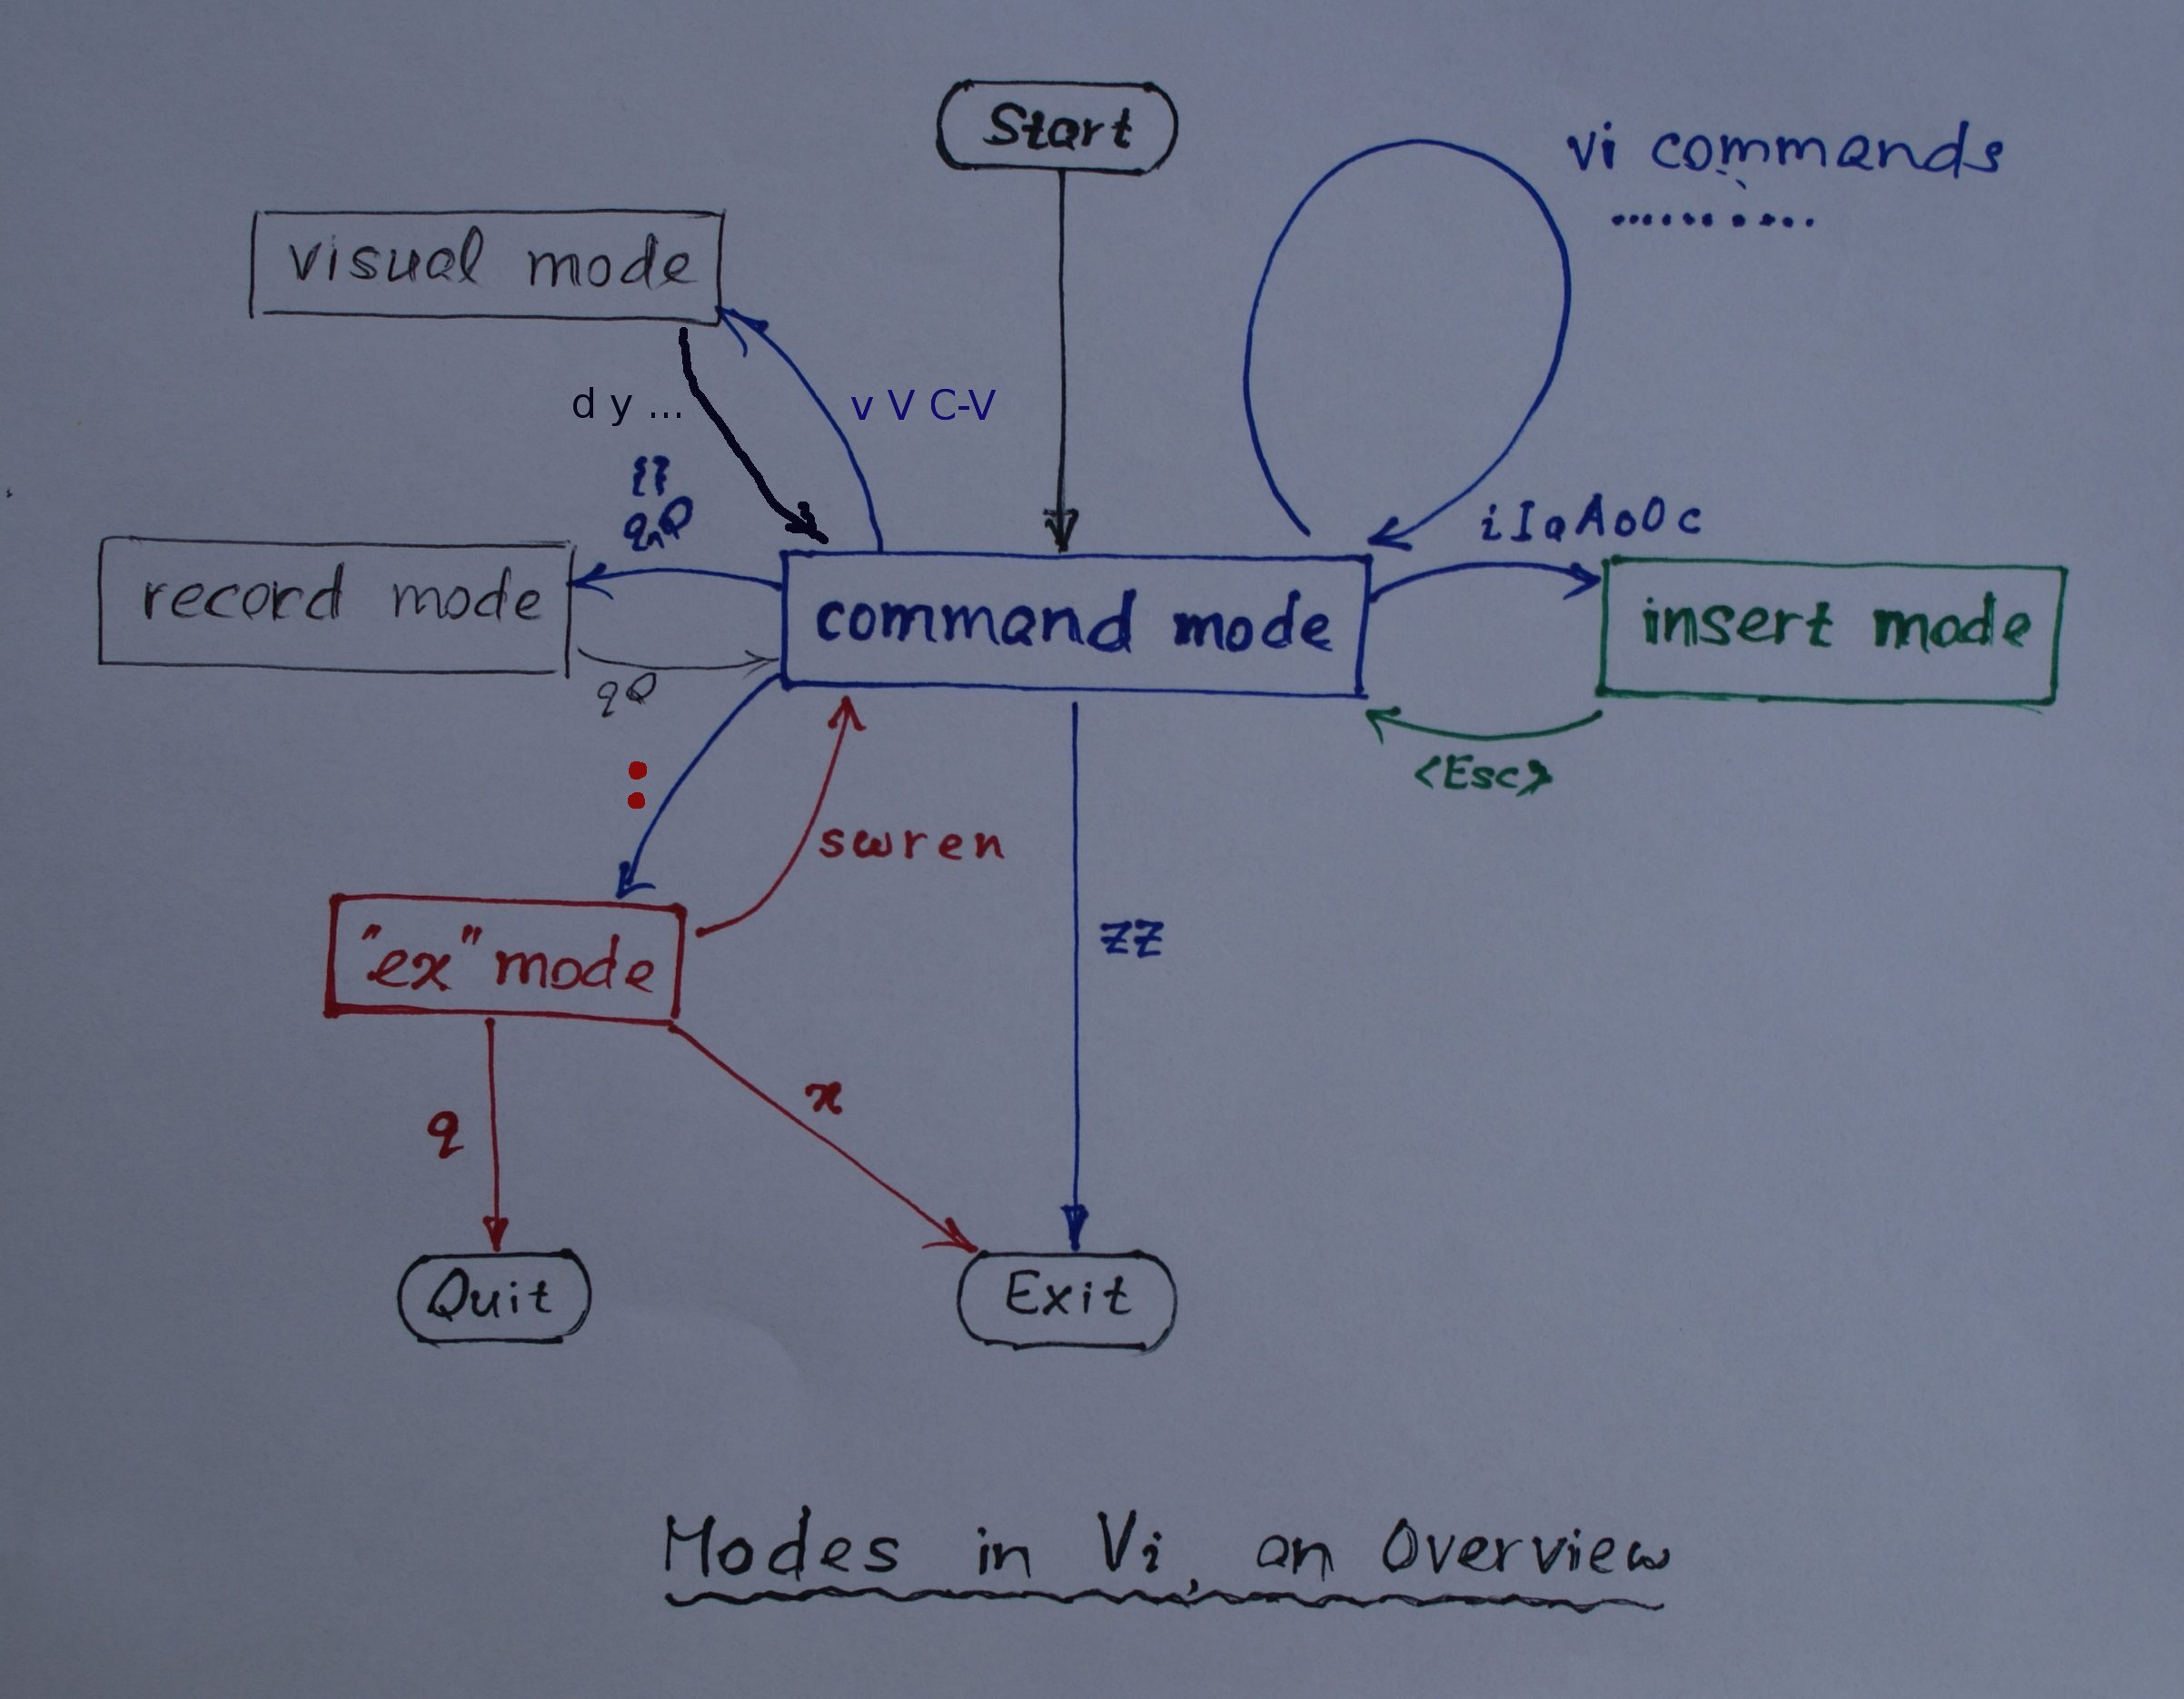 Start
vi commands
...........
visual mode
d y ...
v V C-V
qnQ
iIaAoOc
record mode
command mode
insert mode
qQ
<Esc>
:
swren
"ex" mode
ZZ
x
q
Quit
Exit
Modes in Vi, an Overview